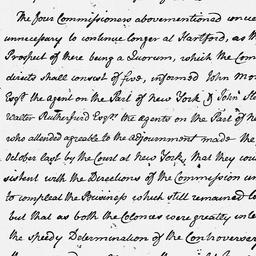 The four Commissioners abovementioned
unnecessary to continue longer at Hartford, as th
Prospect of there being a Quorum, which the Com
directs shall consist of five, informed John Mo
Esqr. the agent on the Part of New York & John Ste
Walter Rutherfurd Esqrs. the agents on the Part of N
who attended agreable to the adjournment made the
October last by the Court at New York, that they cou
sistent with the Directions of the Commission un
to compleat the Business which still remained to
but that as both the Colonies were greatly inte
the speedy Determination of the Controversy